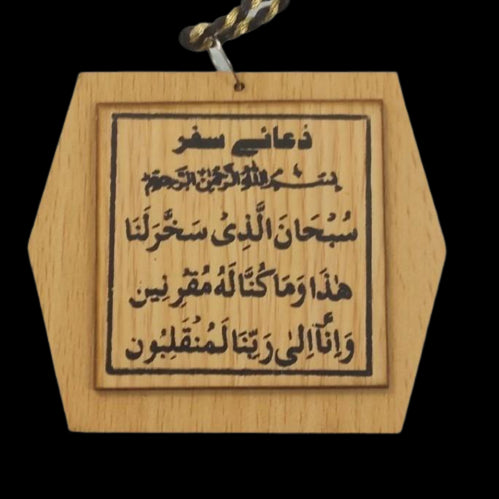 دُعائے سفر
بِسْمِ اللهِ الرَّحْمٰنِ الرَّحِيْمِ
سُبْحَانَ الَّذِىْ سَخَّرَلَنَا
هٰذَا وَمَا كُنَّا لَهُ مُقْرِنِين
وَاِنَّآ اِلٰى رَبِّنَا لَمُنْقَلِبُون